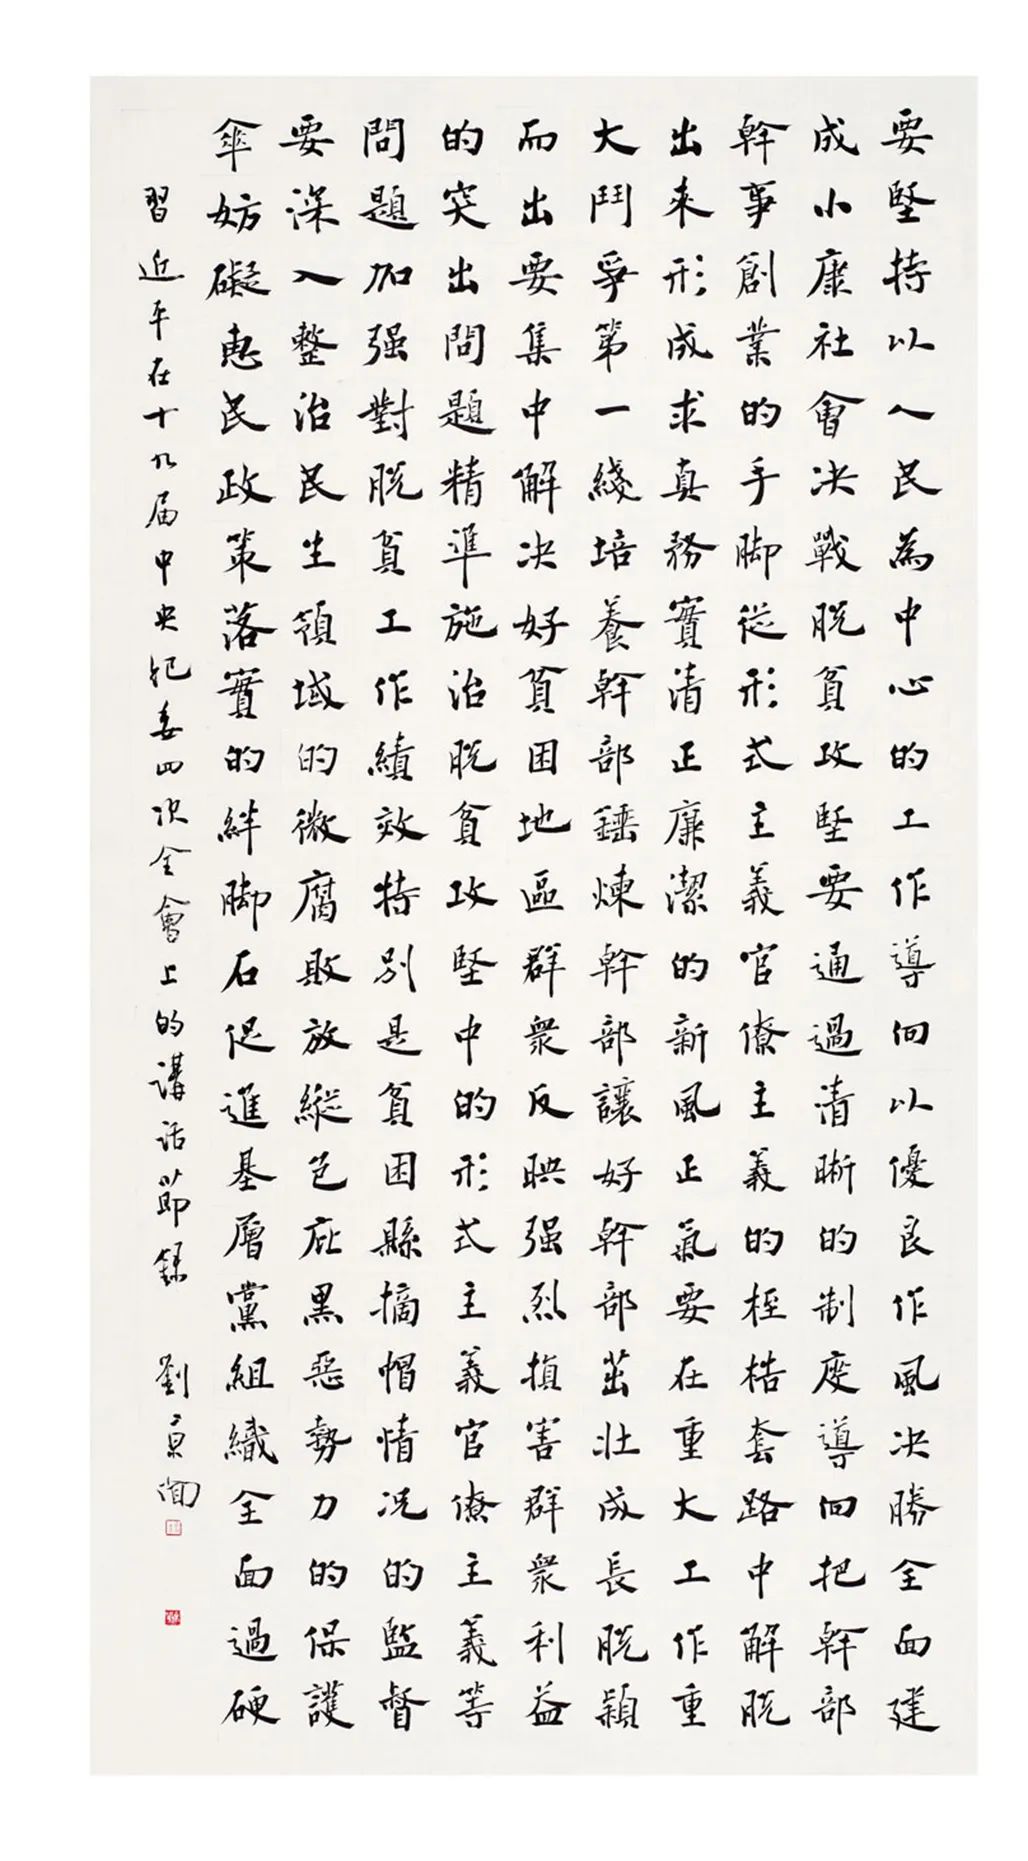 要堅持以人民為中心的工作導向以優良作風决勝全面建
成小康社會决戰脱貧攻堅要通過清晰的制度導向把幹部
幹事創業的手脚從形式主義官僚主義的桎梏套路中解脱
出來形成求真務實清正廉潔的新風正氣要在重大工作重
大鬥爭第一綫培養幹部錘煉幹部讓好幹部茁壯成長脱穎
而出要集中解决好貧困地區群衆反映强烈損害群衆利益
的突出問題精準施治脱貧攻堅中的形式主義官僚主義等
問題加强對脱貧工作績效特别是貧困縣摘帽情况的監督
要深入整治民生領域的微腐敗放縱包庇黑惡勢力的保護
傘妨礙惠民政策落實的絆脚石促進基層黨組織全面過硬
習近平在十九届中央紀委四次全會上的講話節録 劉京聞